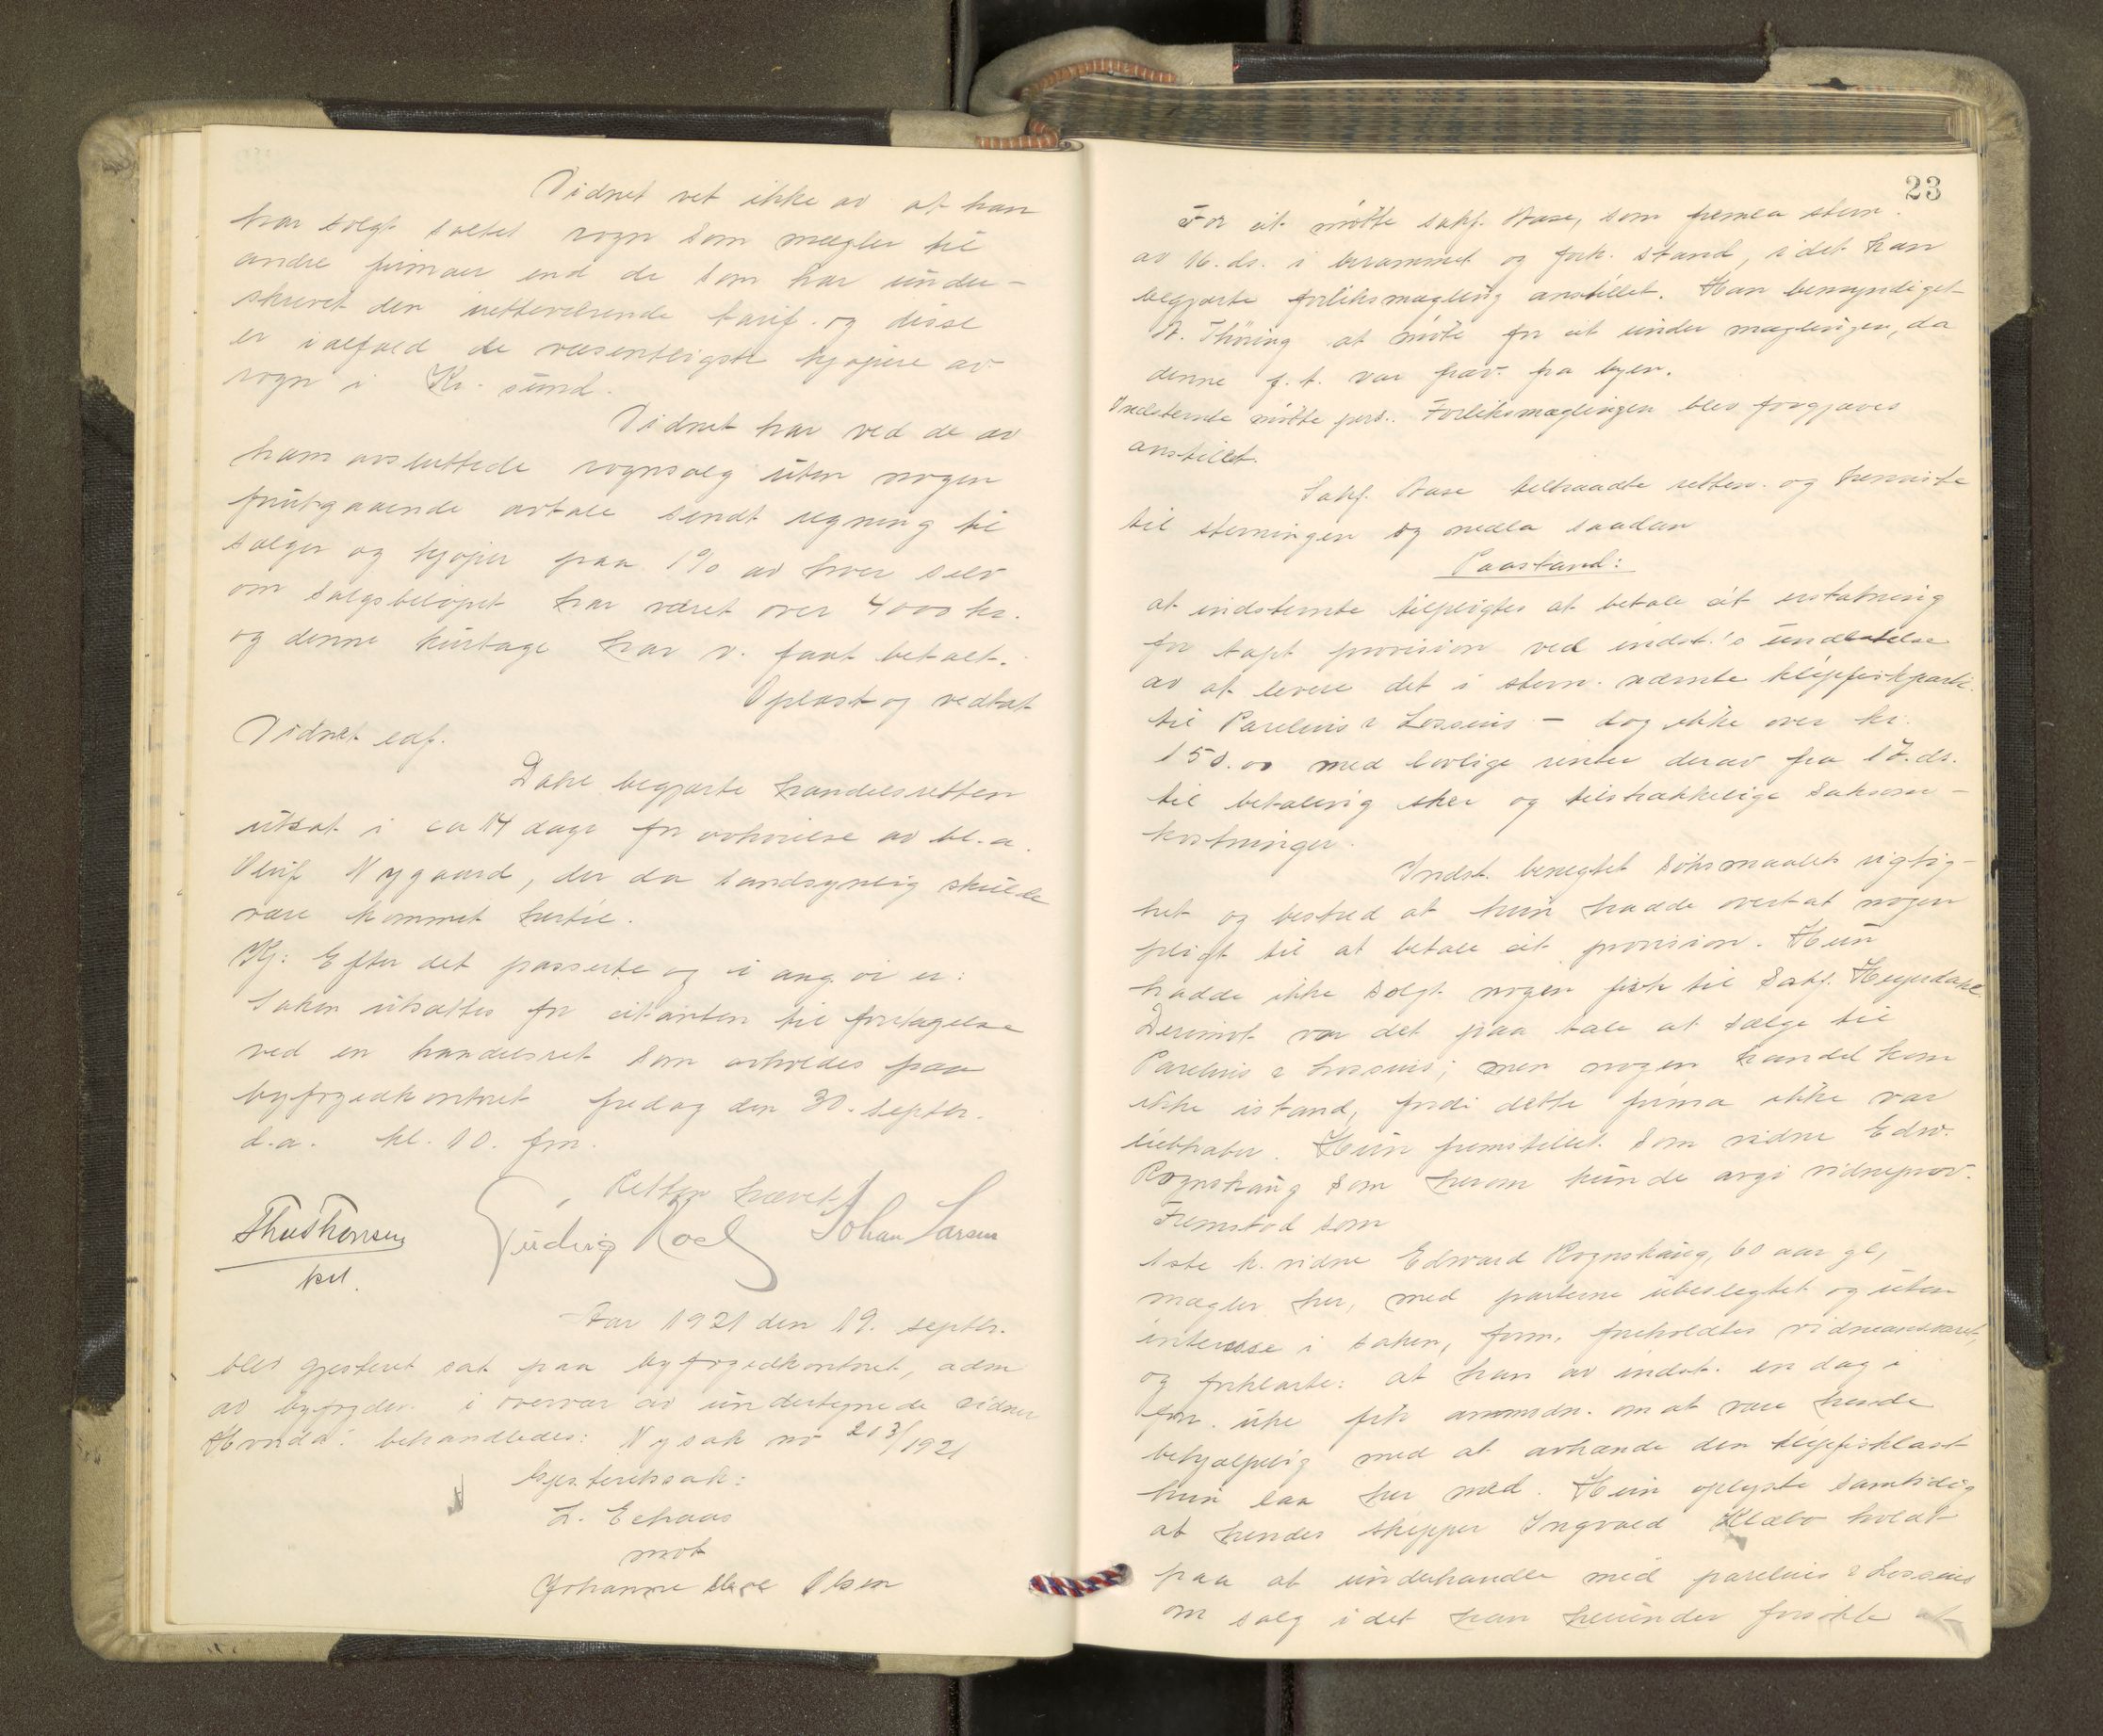 Vidnet vet ikke av at han
har solgt saltet rogn som mægler til
andre firmaer end de som har under-
skrevet den iretteværende tarif. og disse
er ialfald de væsentligste kjøpere av
rogn i Kr. sund.
Vidnet har ved de av
ham avsluttede rognsalg uten nogen
forutgaaende avtale sendt regning til
sælger og kjøper paa 1% av hver selv
om salgsbeløpet har været over 4000 kr.
og denne kurtage har v. faat betalt.
Oplæst og vedtat
Vidnet edf.
Dahl begjærte handelsretten
utsat i ca 14 dage for avhørelse av bl. a.
Oluf Nygaard, der da sandsynlig skulde
være kommet hertil.
Kj: Efter det passerte og i ang. vi er:
Saken utsættes for citanten til foretagelse
ved en handelsret som avholdes paa
byfogedkontoret fredag den 30. septbr.
d.a. kl. 10. fm.
Retten hævet
Thv Thomsen
kst.
Ludvig Roel
Johan Larsen
Aar 1921 den 19. septbr.
blev gjesteret sat paa byfogedkontoret, adm
av byfogden i overvær av undertegnede vidner
Hvorda: behandledes: Ny sak no 213/1921
Gjesteretssak:
L. Echaas
mot
Johanne Olsen
23
For cit. møtte sakf. Aase, som fremla stevn.
av 16. ds. i berammet og fork. stand, idet han
begjærte forliksmægling anstillet. Han bemyndiget
A. Thüring at møte for cit under mæglingen, da
denne f. t. var frav. fra byen.
Indstevnte møtte pers. Forliksmæglingen blev forgjæves
anstillet.
Sakf. Aase tiltraadte retten og henviste
til stevningen og nedla saadan
Paastand:
at indstevnte tilpligtes at betale cit erstatning
for tapt provision ved indst.'s undlatelse
av at levere det i stevn. nævnte klipfiskparti
til Parelius & Lossius – dog ikke over kr.
150.00 med lovlige renter derav fra 17. ds.
til betaling sker og tilstrækkelige saksom-
kostninger.
Indst. benegtet søksmaalets rigtig-
het og bestred at hun hadde overtat nogen
pligt til at betale cit. provision. Hun
hadde ikke solgt nogen fisk til Sakf. Heyerdahl.
Derimot var det paa tale at sælge til
Parelius & Lossius; men nogen handel kom
ikke istand, fordi dette firma ikke var
liebhaber. Hun fremstillet som vidne Edw.
Rognskaug som herom kunde avgi vidneprov.
Fremstod som
1ste k. vidne Edward Rognskaug, 60 aar gl,
mægler her, med parterne ubeslegtet og uten
interesse i saken, form. foreholdtes vidneansvaret,
og forklarte: at han av indst. en dag i
forr. uke fik anmodn. om at være hende
behjælpelig med at avhænde den klipfisklast
hun laa her med. Hun oplyste samtidig
at hendes skipper Ingvald Klæbo holdt
paa at underhandle med parelius & Lossius
om salg idet han herunder forsøkte at